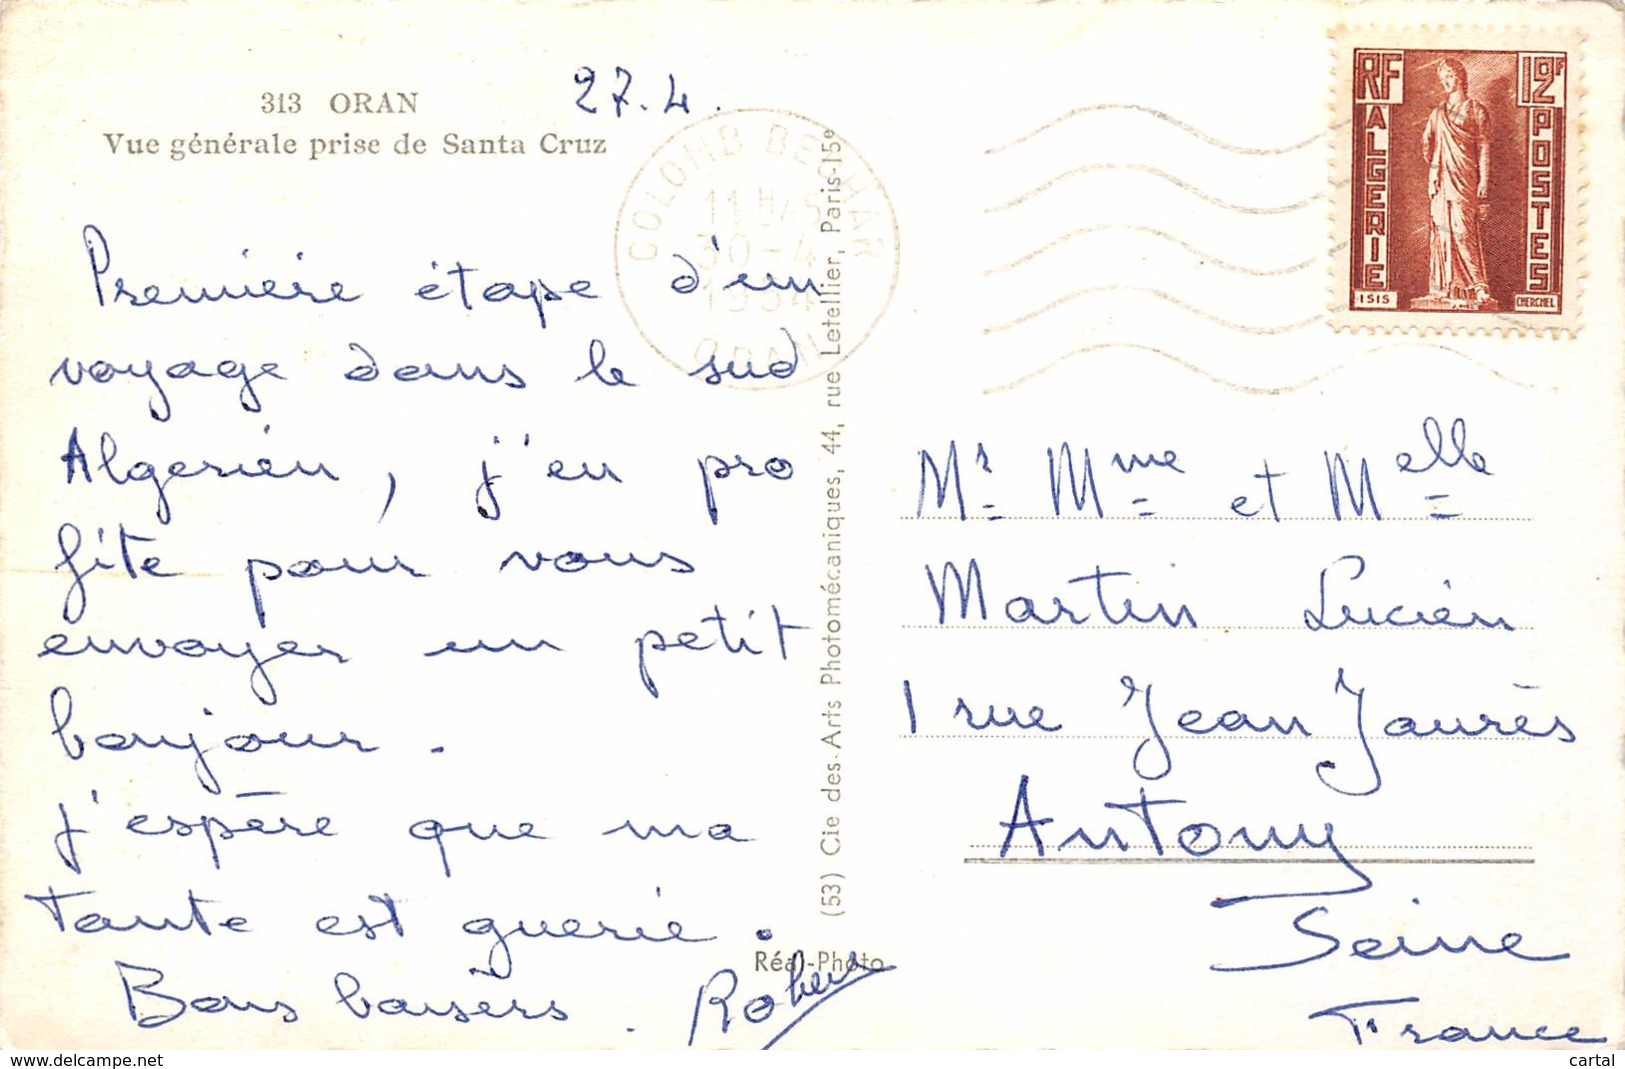 313 ORAN
Vue générale prise de Santa Cruz
27.4.
COLOMB BECHAR
11 H45
30-4
1954
ORAN
RF
ALGERIE
12F
POSTES
ISIS
CHERCHEL
Première étape d'un
voyage dans le sud
Algérien, j'en pro
fite pour vous
envoyer un petit
bonjour.
j'espère que ma
Tante est guerie.
Bons baisers. Robert
(53) Cie des Arts Photomécaniques, 44, rue Letellier, Paris-15e
Réal-Photo
Mr Mme et Melle
Martin Lucien
1 rue Jean Jaurès
Antony
Seine
France
www.delcampe.net
cartal